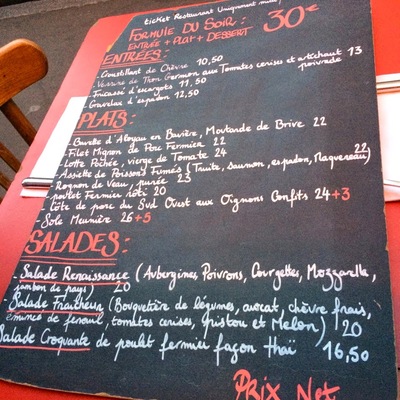 ticket Restaurant Uniquement midi
FORMULE DU SOIR : 30€
ENTRÉE + PLAT + DESSERT
ENTRÉES :
- Croustillant de Chèvre 10,50
- Verrine de Thon Germon aux Tomates cerises et artichaut 13
poivrade
- Fricassé d'escargots 11,50
- Gravelax d'espadon 12,50
PLATS :
- Bavette d'Aloyau en Bavière, Moutarde de Brive 22
- Filet Mignon de Porc Fermier 22
- Lotte Pochée, vierge de Tomate 24
- Assiette de Poissons Fumés (Truite, Saumon, espadon, Maquereau) 22
- Rognon de Veau, purée 23
- poulet Fermier rôti 20
- Côte de porc du Sud Ouest aux Oignons Confits 24+3
- Sole Meunière 26+5
SALADES :
- Salade Renaissance (Aubergines, Poivrons, Courgettes, Mozzarella,
jambon de pays) 20
- Salade Fraîcheur (Bouquetière de légumes, avocat, chèvre frais,
émincé de fenouil, tomates cerises, pistou et Melon) 20
Salade Croquante de poulet fermier façon thaï 16,50
PRIX Net